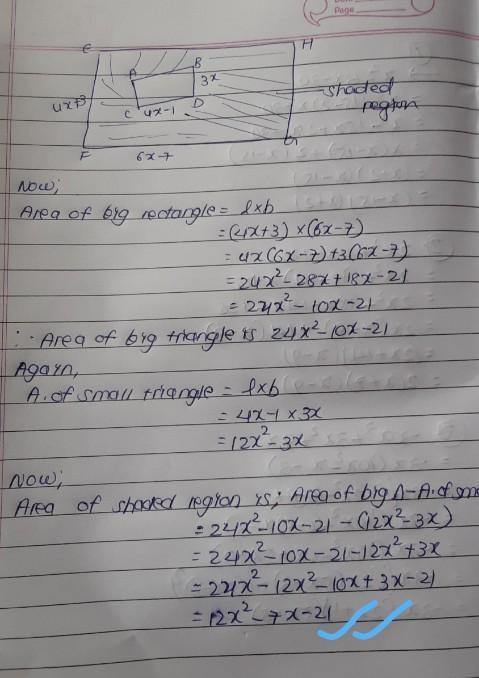 Page
E H
A B
3x
4x+3
shaded region
C 4x-1 D
F 6x-7 G
Now;
Area of big rectangle = l×b
= (4x+3) × (6x-7)
= 4x(6x-7)+3(6x-7)
= 24x²-28x+18x-21
= 24x²-10x-21
∴ Area of big triangle is 24x²-10x-21
Again,
A. of small triangle = l×b
= 4x-1 × 3x
= 12x²-3x
Now;
Area of shaded region is; Area of big Δ-A. of sma
= 24x²-10x-21-(12x²-3x)
= 24x²-10x-21-12x²+3x
= 24x²-12x²-10x+3x-21
= 12x²-7x-21